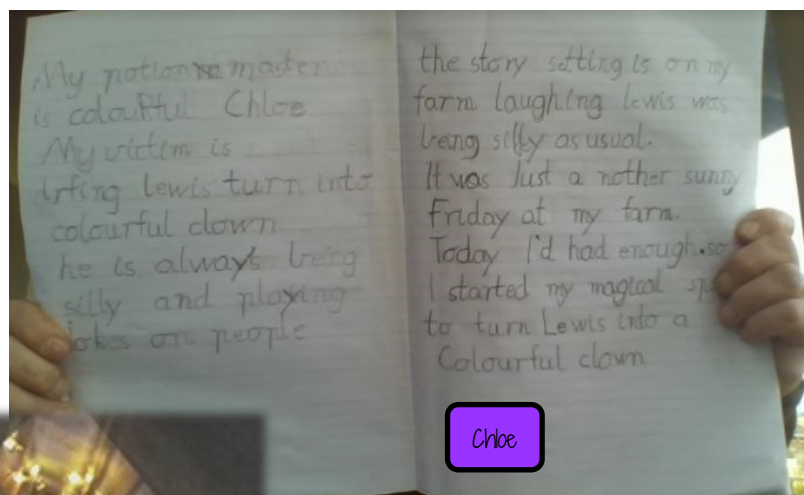 My potion master
is colourful Chloe
My victim is
Lewis turn into
colourful clown
he is always being
silly and playing
jokes on people
the story setting is on my
farm laughing lewis was
being silly as usual.
It was Just a nother sunny
Friday at my farm.
Today I'd had enough.so
I started my magical
to turn Lewis into a
Colourful clown
Chloe